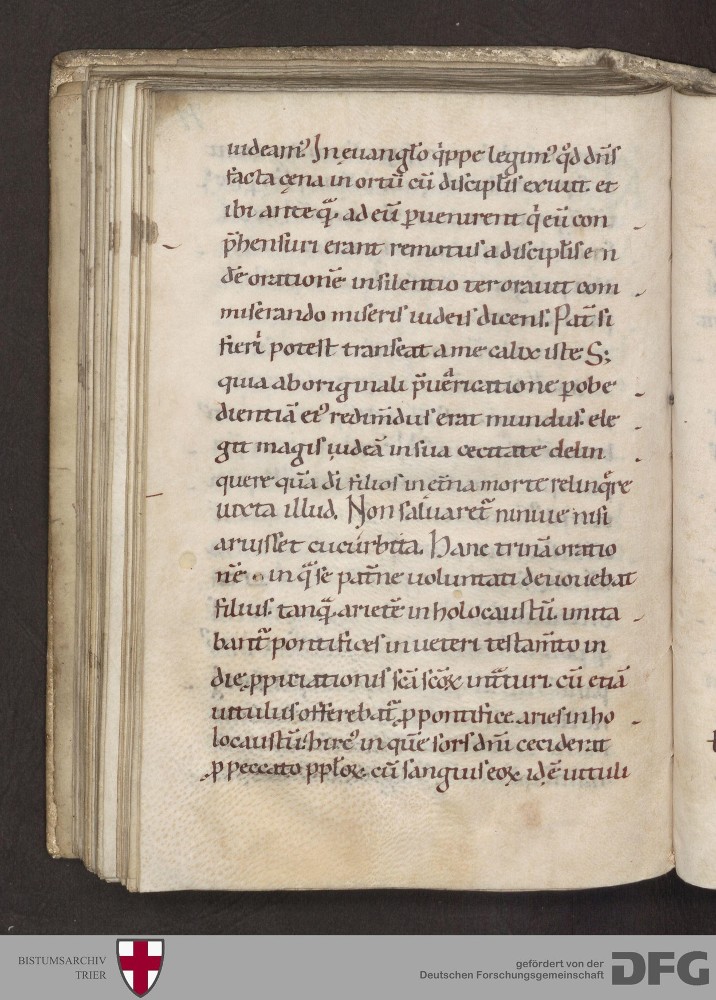 iudeam᷒. In euangl̄o q̇ppe legim᷒ qd̄ dn̄s
facta cęna in ortū cū discipl̄is exiuit. et
ibi anteq̄ ad eū ꝑuenirent q̇ eū con
p̄hensuri erant remotus a discipl̄is ein
dē orationē in silentio ter orauit com
miserando miseris iudeis dicens. Pat̄ si
fieri potest transeat a me calix iste S;
quia ab originali p̄uaricatione ꝑ obe
dientiā ei᷒ redim̄dus erat mundus. ele
git magis iudeā in sua cecitate delin
quere quā dī filios in et̄na morte relinq̄re
iuxta illud. Non saluaret᷑ niniue nisi
aruisset cucurbita. Hanc trinā oratio
nē in q̄ se pat̄ne uoluntati deuouebat
filius. tanq̄ arietē in holocaustū. imita
bant᷑ pontifices in ueteri testam̄to in
die ꝓpiciationis sc̄a sc̄oꝝ int̄turi. cū etiā
uitulus offerebat᷑ ꝓ pontifice. aries in ho
locaustū. hirc᷒ in quē sors dn̄i ceciderat
ꝓ peccato ppl̄oꝝ. cū sanguis eoꝝ. id ē uituli
BISTUMSARCHIV
TRIER
gefördert von der
Deutschen Forschungsgemeinschaft
DFG